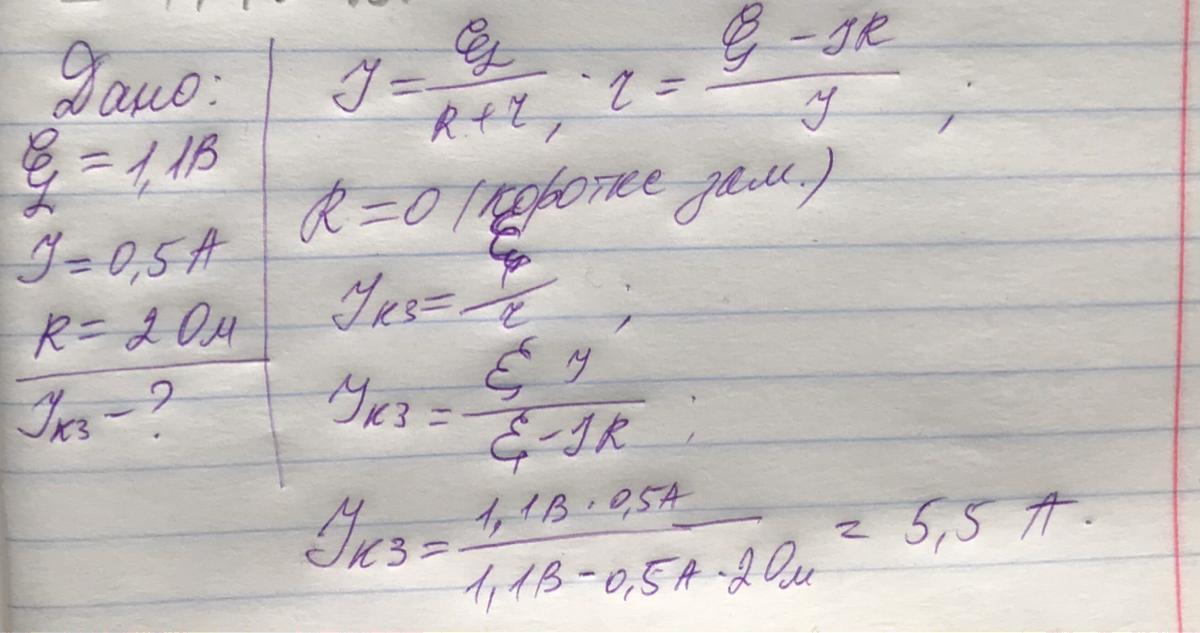 Дано:
ℰ = 1,1В
I = 0,5 А
R = 2 Ом
Iкз - ?
I = ℰ / (R + r), r = (ℰ - IR) / I ;
R = 0 (коротке зам.)
Iкз = ℰ / r ;
Iкз = ℰ I / (ℰ - IR) ;
Iкз = (1,1В · 0,5А) / (1,1В - 0,5А · 2 Ом) = 5,5 А.